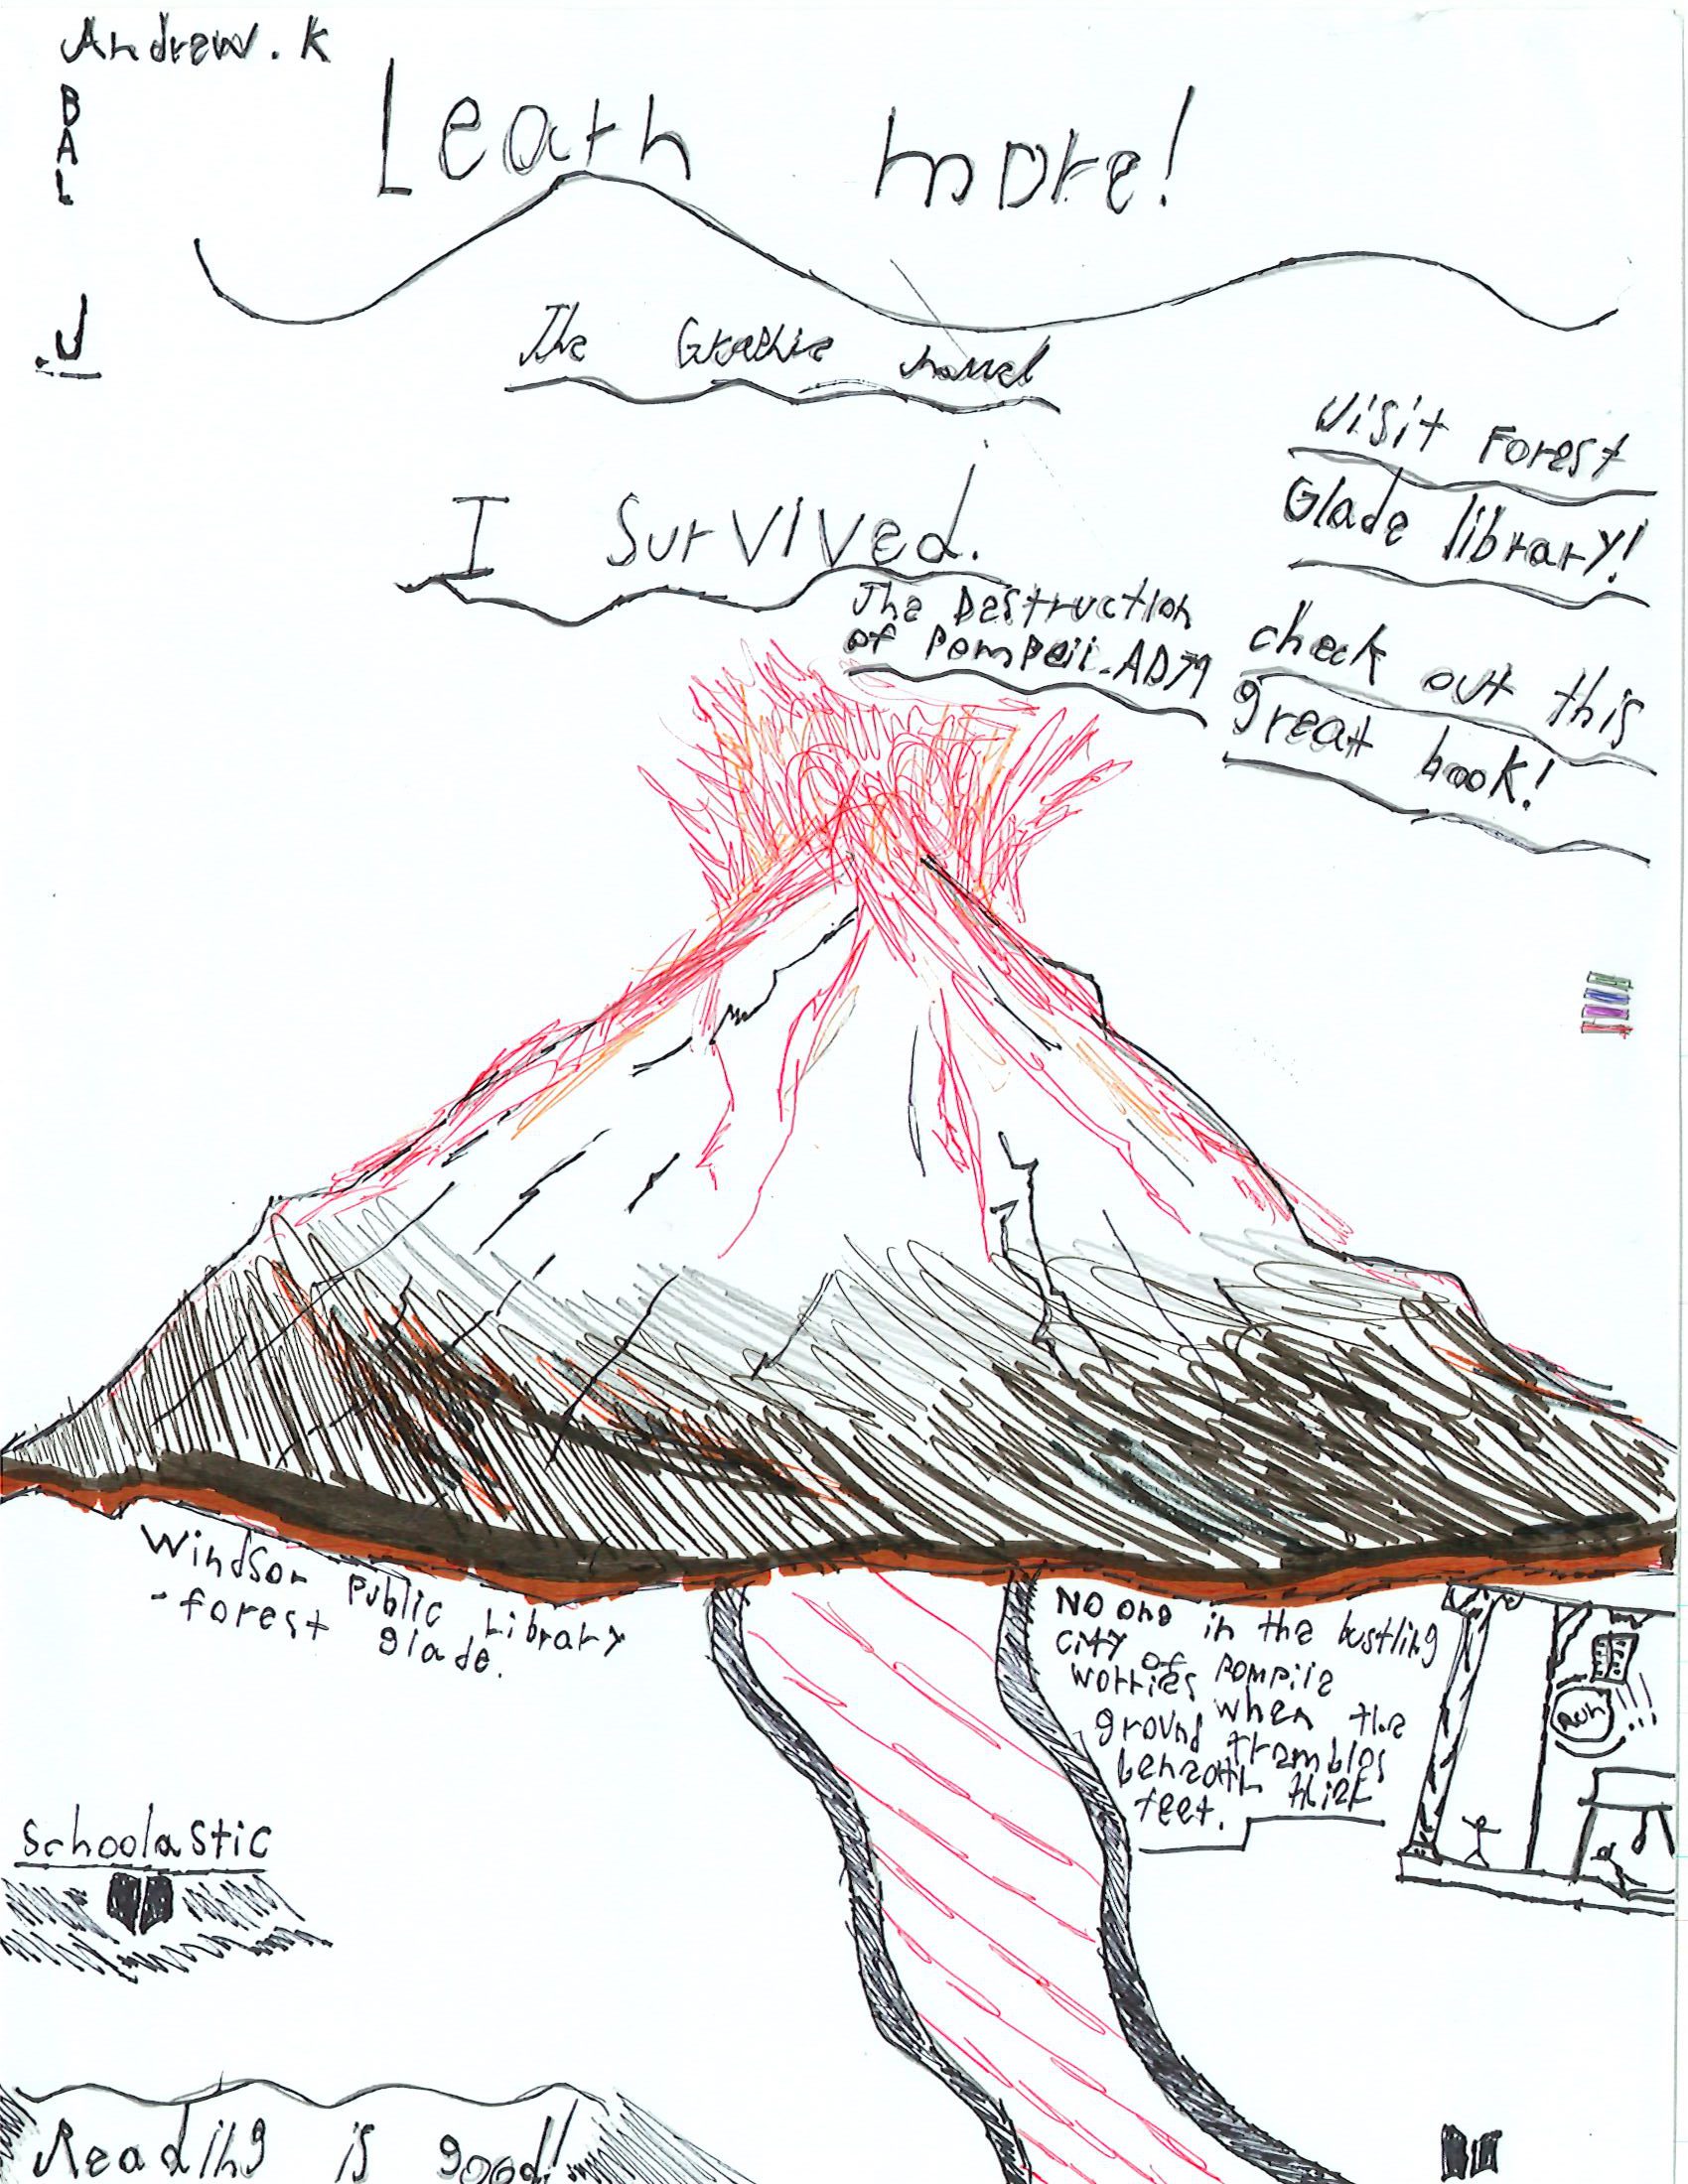 Andrew. K
BAL
J
Learn more!
The Graphic novel
I Survived.
The Destruction
of Pompeii. AD79
Visit Forest
Glade library!
check out this
great book!
Windsor Public Library
- forest glade.
No one in the bustling
city of Pompiie
worries when the
ground trembles
beneath thier
feet.
RUN
!!!
Schoolastic
Reading is good!